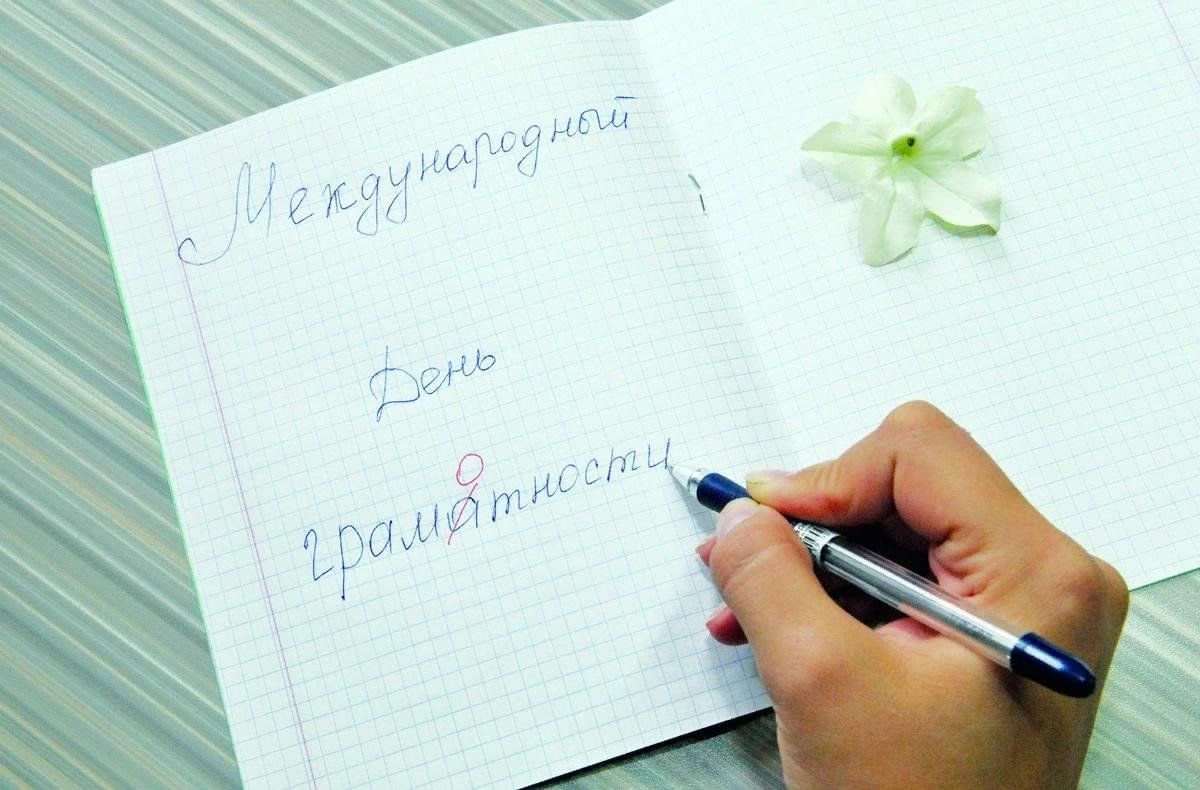 Международный
День
о
граматности